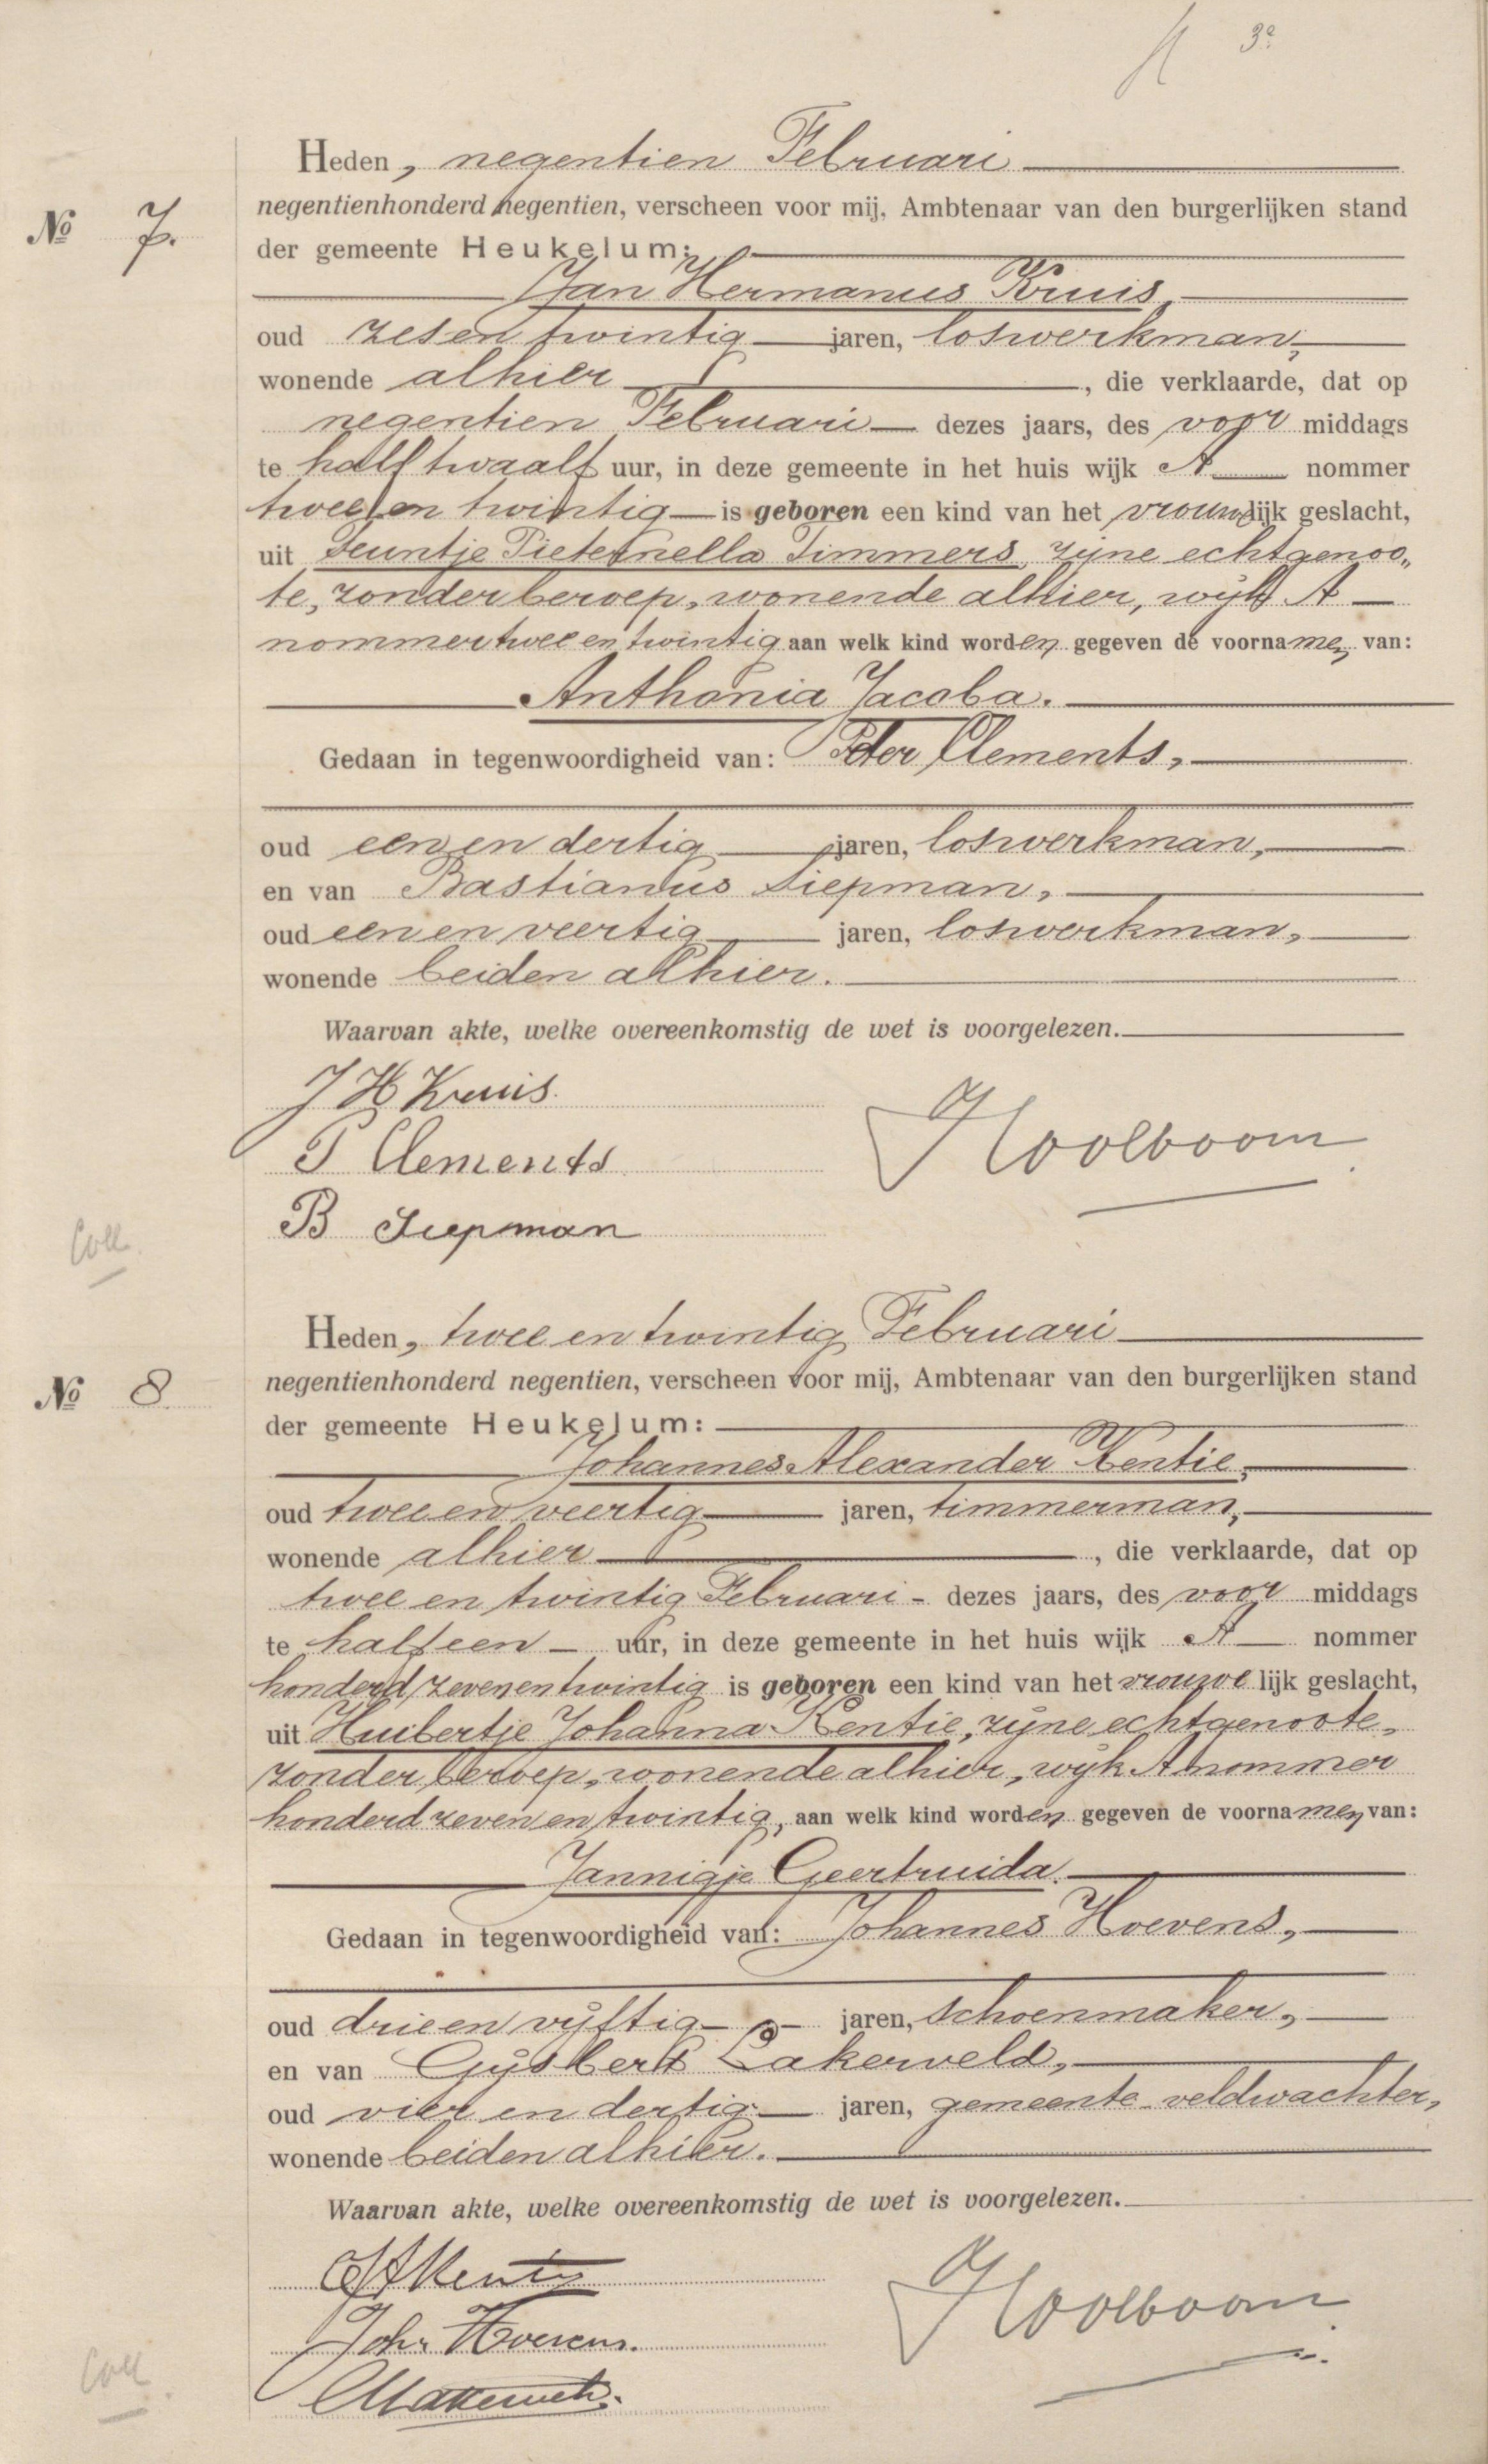 3e
Heden, negentien Februari
negentienhonderd negentien, verscheen voor mij, Ambtenaar van den burgerlijken stand
No 7.
der gemeente Heukelum:
Jan Hermanus Kruis,
oud zes en twintig jaren, loswerkman,
wonende alhier, die verklaarde, dat op
negentien Februari dezes jaars, des voormiddags
te half twaalf uur, in deze gemeente in het huis wijk A nommer
twee en twintig is geboren een kind van het vrouwlijk geslacht,
uit Teuntje Pieternella Timmers, zijne echtgenoo„
te, zonder beroep, wonende alhier, wijk A
nommer twee en twintig aan welk kind worden gegeven de voornamen van:
Anthonia Jacoba.
Gedaan in tegenwoordigheid van: Peter Clements,
oud een en dertig jaren, loswerkman,
en van Bastianus Siepman,
oud een en veertig jaren, loswerkman,
wonende beiden alhier.
Waarvan akte, welke overeenkomstig de wet is voorgelezen.
J H Kruis.
Hoolboom
P Clements
B Siepman
Coll.
Heden, twee en twintig Februari
negentienhonderd negentien, verscheen voor mij, Ambtenaar van den burgerlijken stand
No 8.
der gemeente Heukelum:
Johannes Alexander Kentie,
oud twee en veertig jaren, timmerman,
wonende alhier, die verklaarde, dat op
twee en twintig Februari - dezes jaars, des voormiddags
te half een uur, in deze gemeente in het huis wijk A nommer
honderd zeven en twintig is geboren een kind van het vrouwelijk geslacht,
uit Huibertje Johanna Kentie, zijne echtgenoote,
zonder beroep, wonende alhier, wijk A nommer
honderd zeven en twintig, aan welk kind worden gegeven de voornamen van:
Jannigje Geertruida.
Gedaan in tegenwoordigheid van: Johannes Hoevens,
oud drie en vijftig jaren, schoenmaker,
en van Gijsbert Lakerveld,
oud vier en dertig jaren, gemeente-veldwachter,
wonende beiden alhier.
Waarvan akte, welke overeenkomstig de wet is voorgelezen.
Kentie
Hoolboom
Joh. Hoevens.
Coll